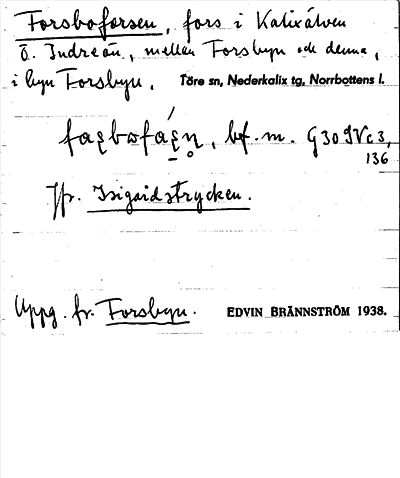 Forsboforsen, fors i Kalixälven
Ö. Indreån, mellan Forsbyn och denna,
i byn Forsbyn. Töre sn, Nederkalix tg, Norrbottens l.
bf. m. G 30 IV c 3,
136
Jfr. Isigaidstrycken.
Uppg. fr. Forsbyn. EDVIN BRÄNNSTRÖM 1938.